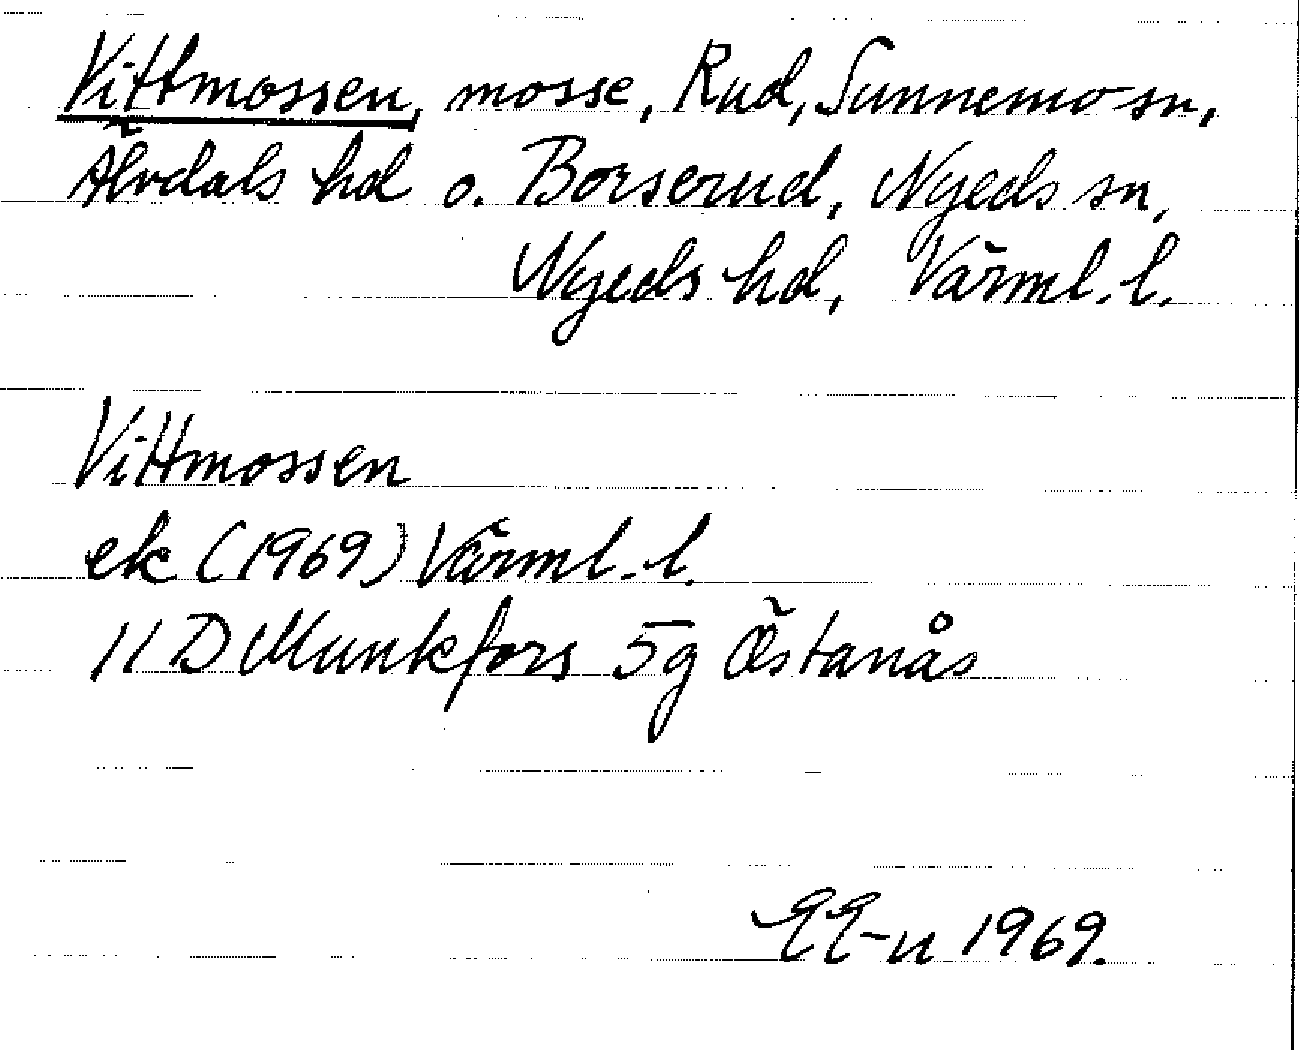 Vittmossen, mosse, Rud, Sunnemo sn,
Älvdals hd o. Borserud, Nyeds sn,
Nyeds hd, Värml. l.
Vittmossen
ek (1969) Värml. l.
11 D Munkfors 5g Östanås
EE-n 1969.